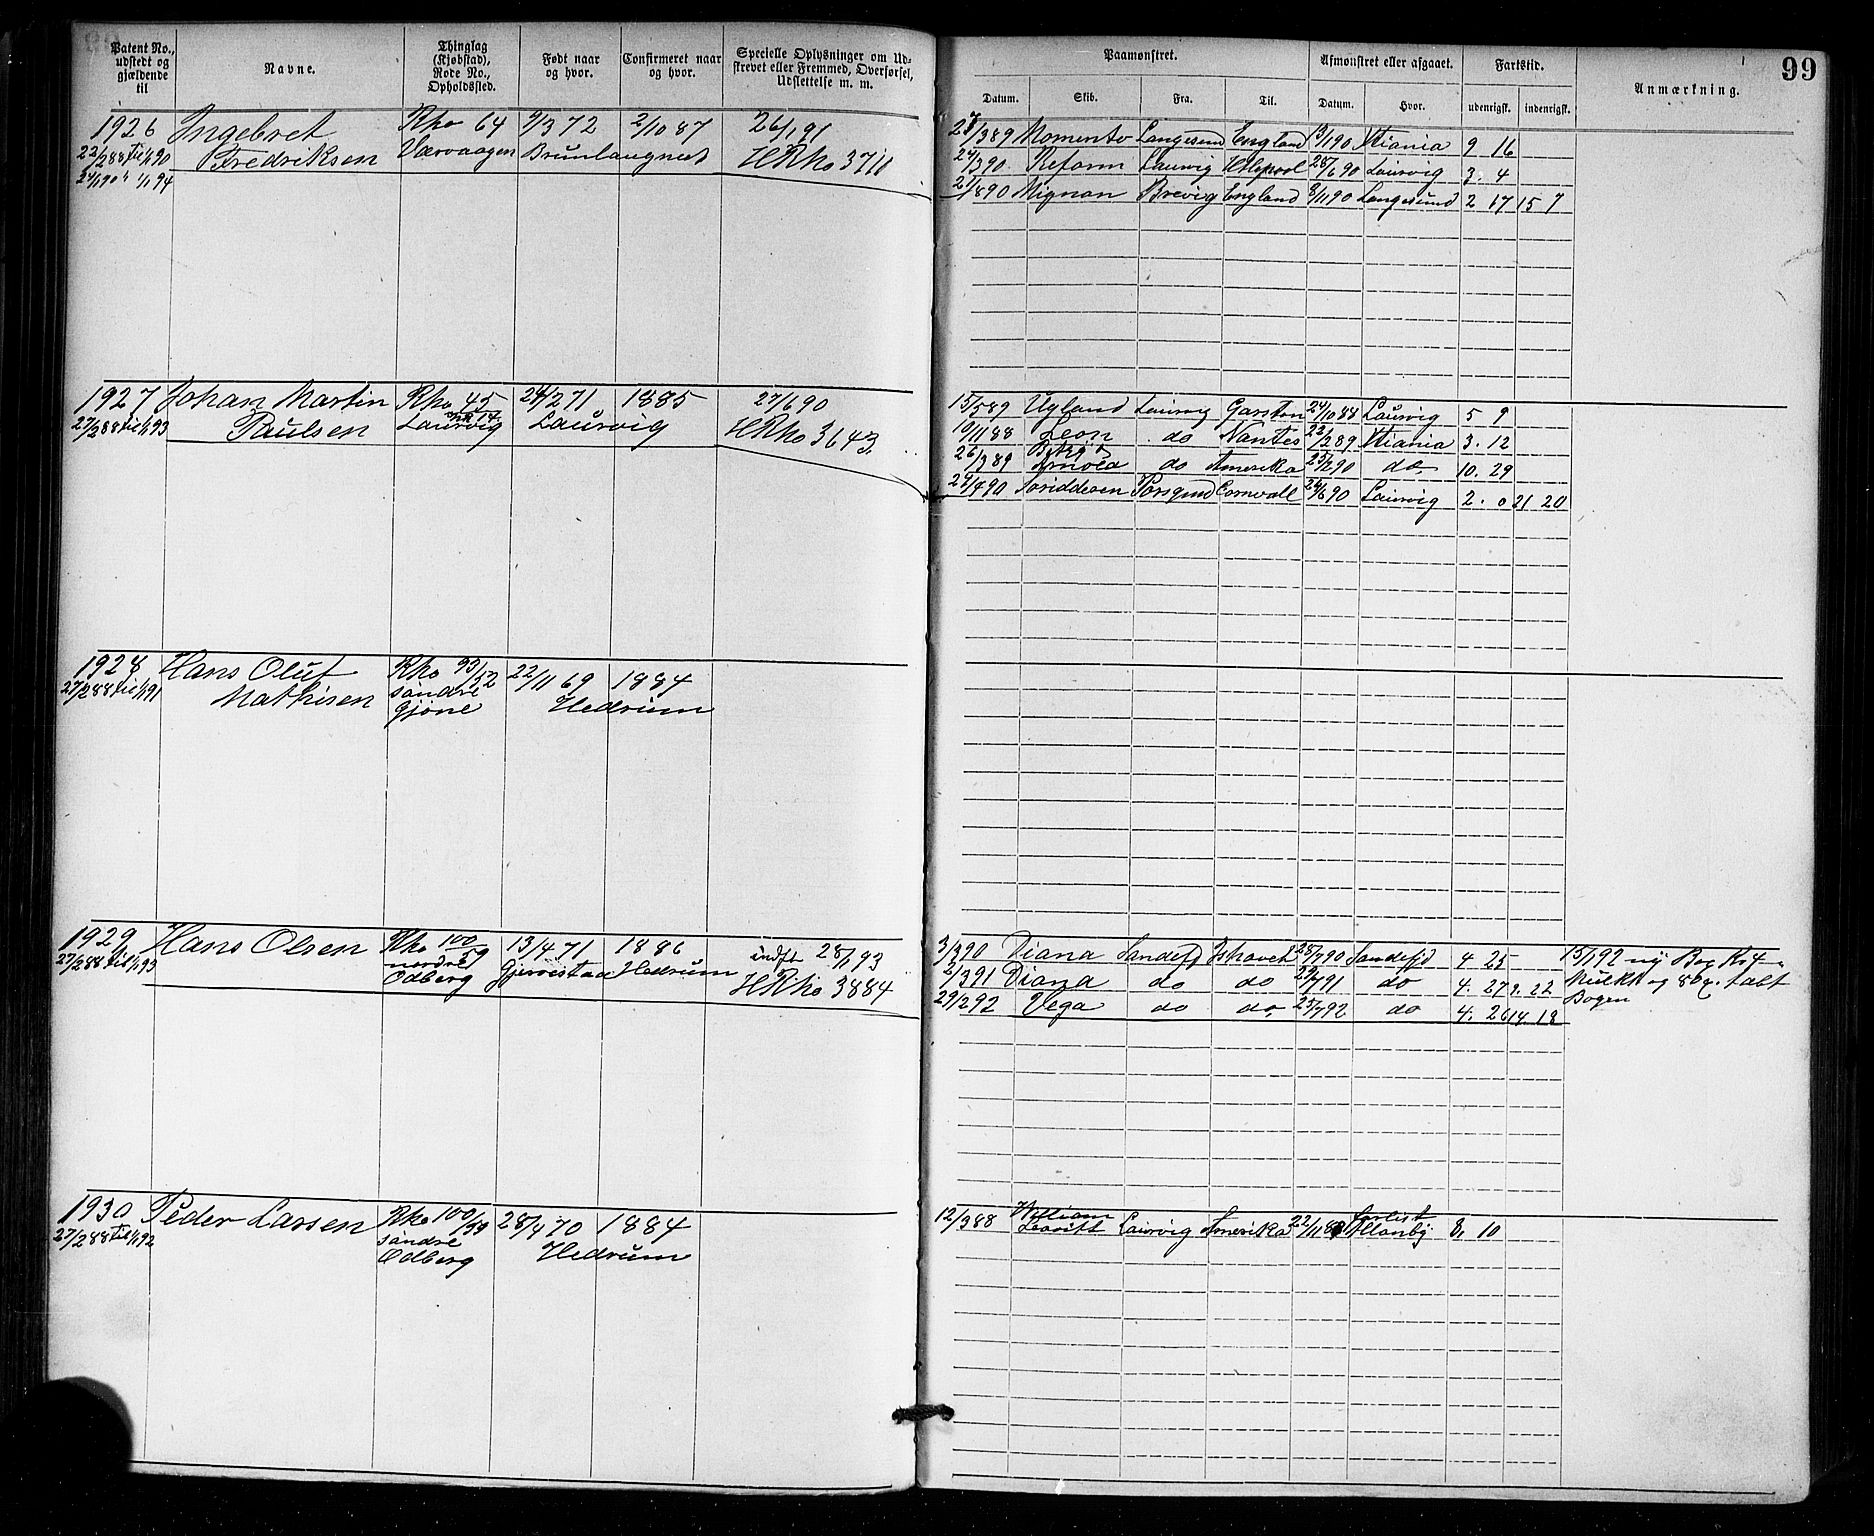 99
Patent No., udstedt og gjældende til
Navne.
Thinglag (Kjøbstad), Rode No., Opholdssted.
Født naar og hvor.
Confirmeret naar og hvor.
Specielle Oplysninger om Udstrevet eller Fremmed, Overførsel, Udslettelse m. m.
Paamønstret.
Afmønstret eller afgaaet.
Fartstid.
Anmærkning.
Datum. Skib. Fra. Til. Datum. Hvor. udenrigsk. indenrigsk.
1926 Ingebret Rho 64 9/3 72 2/10 87 26/1 91
22/2 88 til 1/1 90 Fredriksen Værvaagen Brunlaugnæs HRho 3711
24/1 90 " 1/1 94
Momento Langesund England Xtiania 9 16
24/3 90 Reform Laurvig Htlepool 28/6 90 Laurvig 3. 4
21/8 90 Mignon Brevig England 8/11 90 Langesund 2 17 15 7
1927 Johan Martin Rho 45 24/2 71 1885 27/6 90
27/2 88 til 1/1 93 Paulsen Laurvig Laurvig HRho 3643
15/5 89 Ugland Laurvig Garston 24/10 88 Laurvig 5 9
10/11 88 Leon do Nantes 22/2 89 Xtiania 3. 12
26/3 89 do Amerika 25/2 90 do 10. 29
29/4 90 Porsgrund Cornvall 24/6 90 Laurvig 2. 0 21 20
1928 Hans Oluf Rho 93/52 22/11 69 1884
27/2 88 til 1/1 91 Mathisen søndre Hedrum
Gjöne
1929 Hans Olsen Rho 100/59 13/4 71 1886 indft 28/1 93
27/2 88 til 1/1 93 nordre Hedrum HRho 3884
Odberg
3/3 90 Diana Sandefj Ishavet 28/7 90 Sandefjd 4 25 15/1 92 ny Bog Kr 4
2/3 91 Diana do do 29/7 91 do 4. 27 9. 22 Mulkt og 80 ø. tabt
29/2 92 Vega do do 25/7 92 do 4. 26 14. 18 Bogen
1930 Peder Larsen Rho 100/59 28/4 70 1884
27/2 88 til 1/1 92 søndre Hedrum
Odberg
12/3 88 William Leavitt Laurvig Amerika 22/11 88 forlist Allonby 8, 10